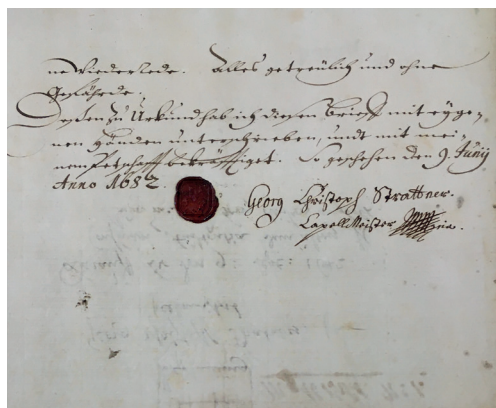 ne wiederrede. Alles getreülich und ohne
Gefährde.
Dessen zu Urkund hab ich diesen brieff mit eyge-
nen Handen unterschrieben, undt mit mei-
nem Petschafft bekräfftiget. So geschehen den 9. Junij
Anno 1682.
Georg Christoph Strattner.
CapellMeister